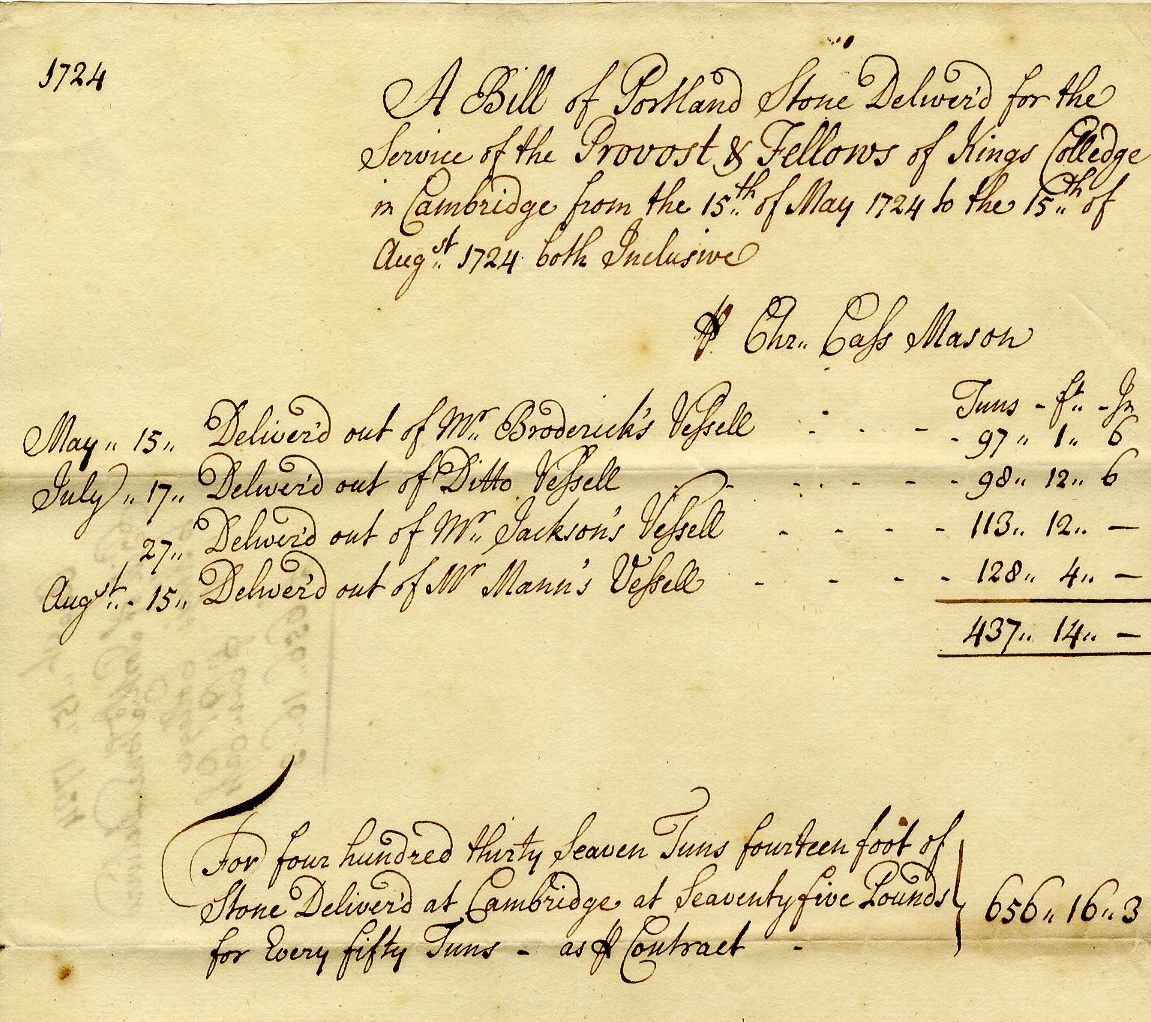 1724
A Bill of Portland Stone Deliver'd for the
Service of the Provost & Fellows of Kings Colledge
in Cambridge from the 15th of May 1724 to the 15th of
Augst 1724 both Inclusive
⅌ Chr" Cass Mason
Tuns - ft" - In
May" 15" Deliver'd out of Mr Broderick's Vessell - - - - 97" 1" 6
July" 17" Deliver'd out of Ditto Vessell - - - - - - - 98" 12" 6
27" Deliver'd out of Mr Jackson's Vessell - - - - - 113" 12" —
Augst" - 15" Deliver'd out of Mr Mann's Vessell - - - - - 128" 4" —
437" 14" —
For four hundred thirty Seaven Tuns fourteen foot of
Stone Deliver'd at Cambridge at Seaventy five Pounds } 656" 16" 3
for Every fifty Tuns - as ⅌ Contract -